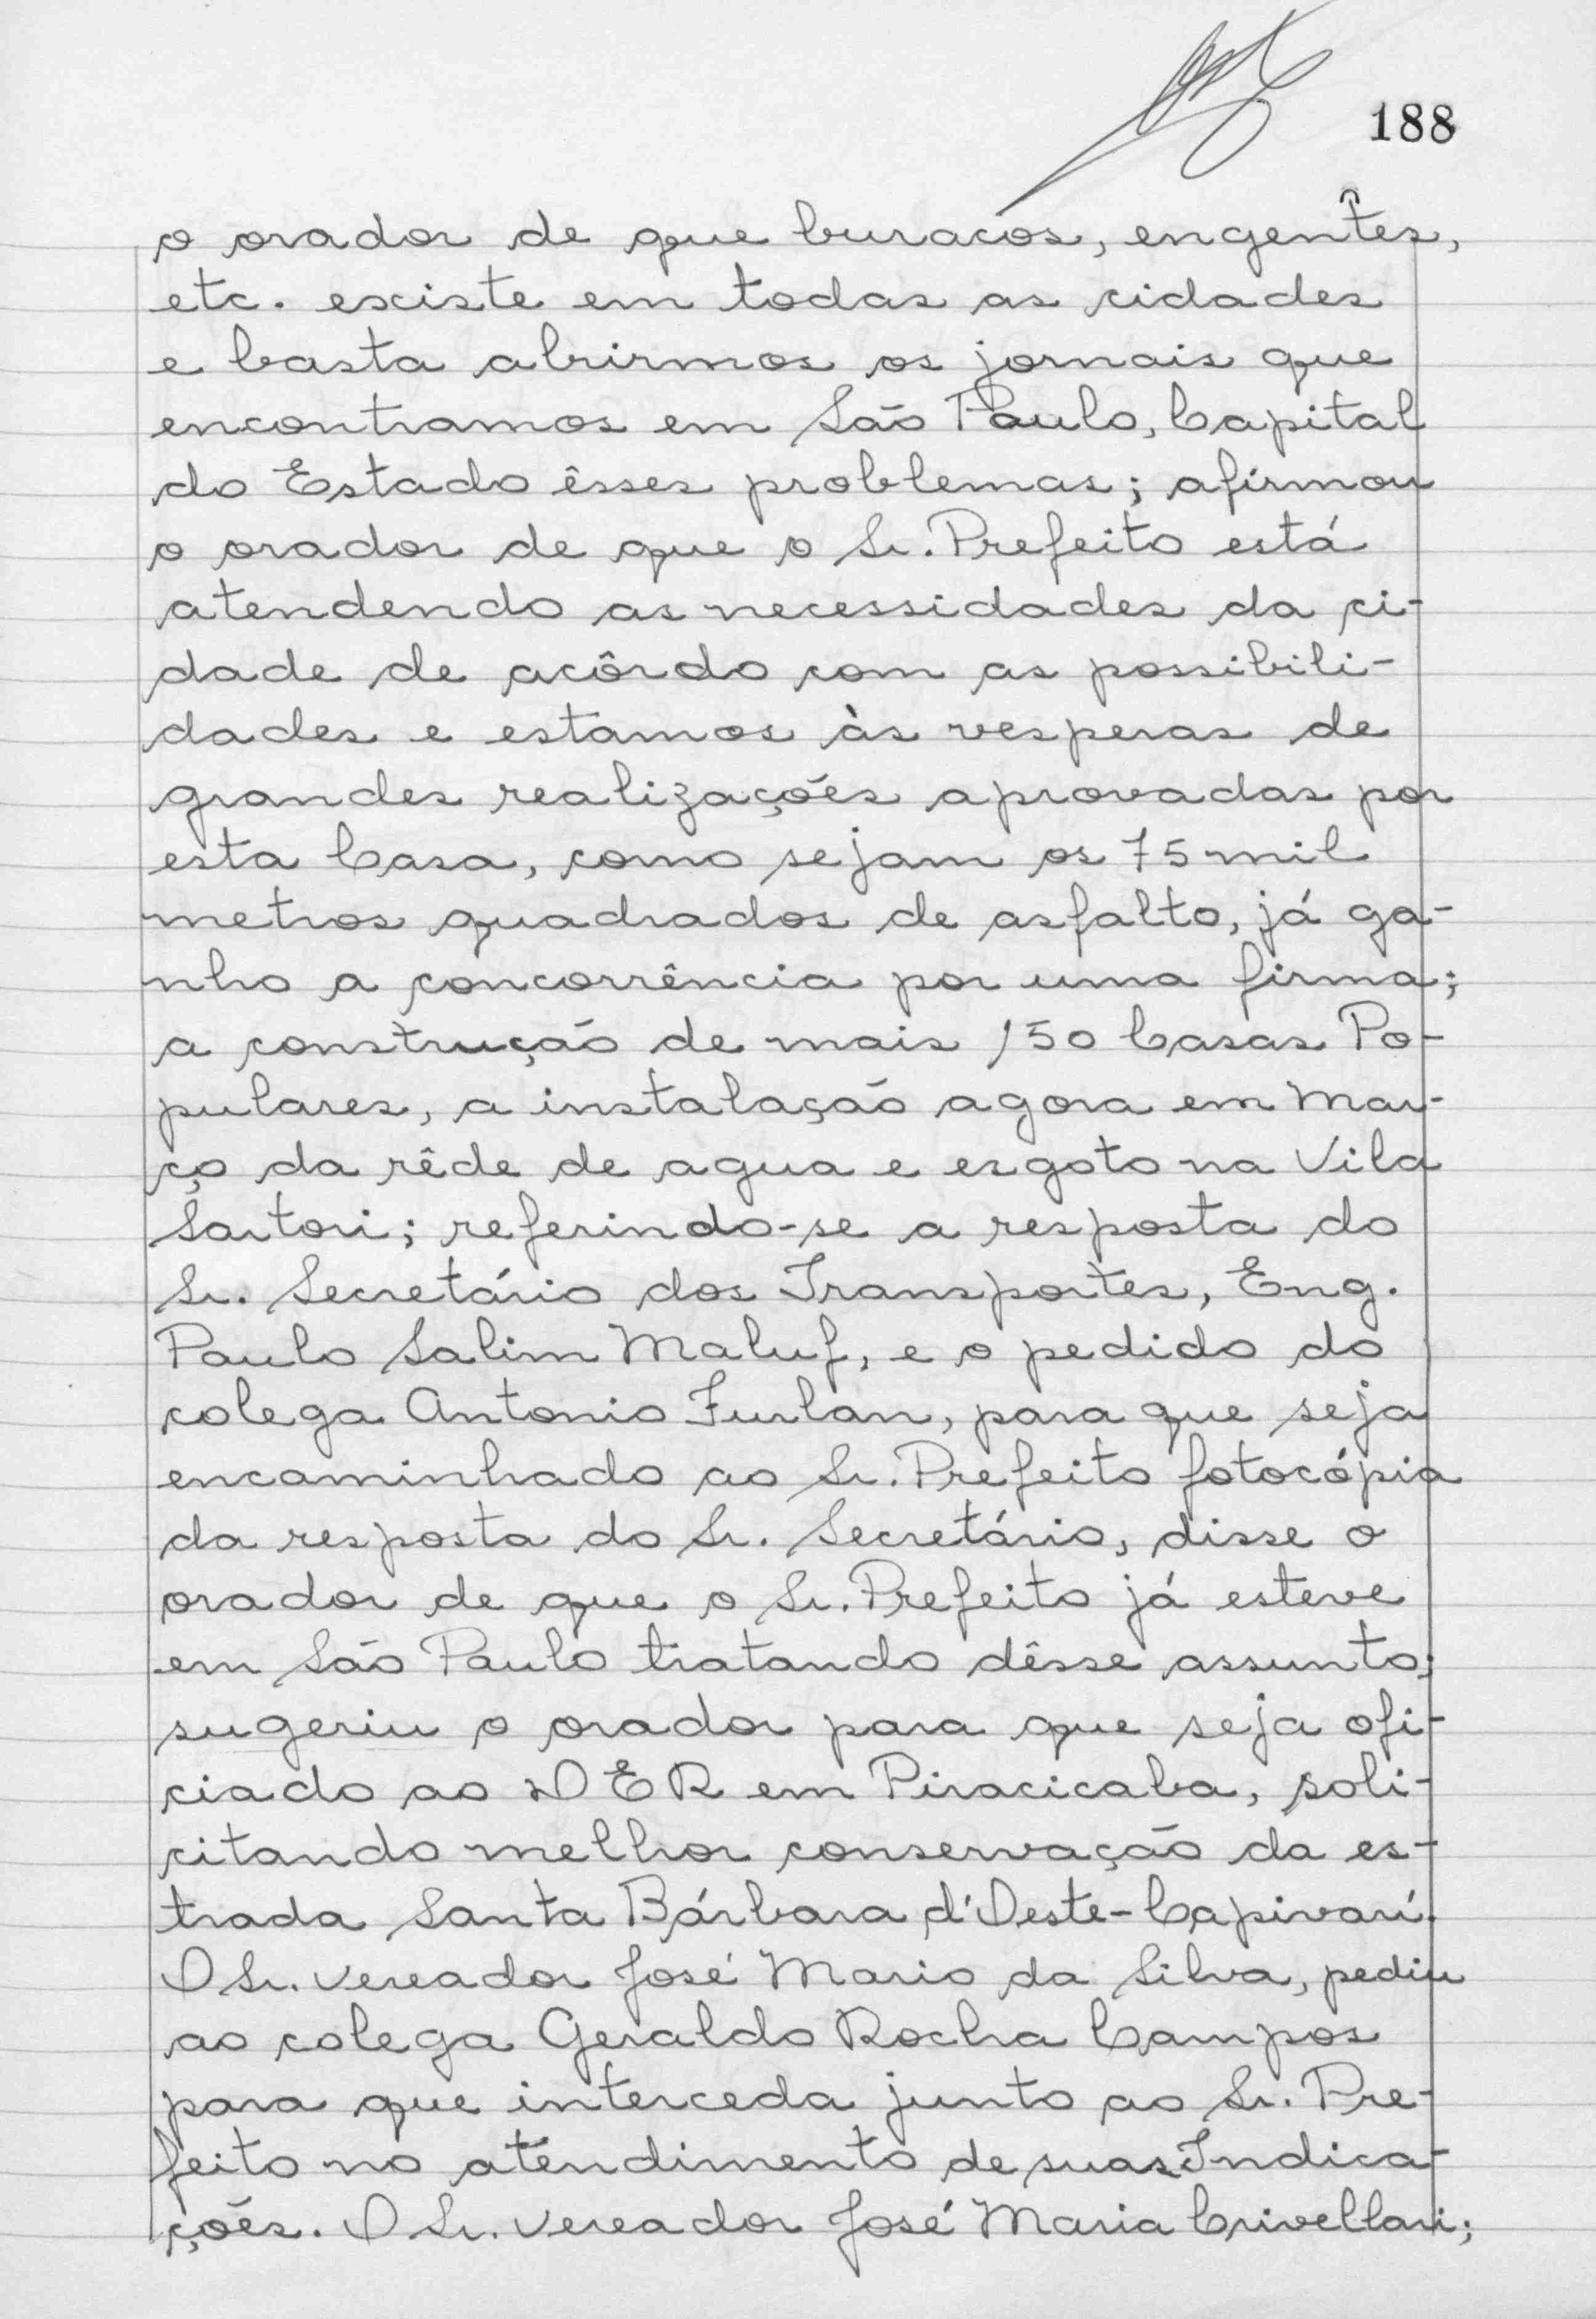 188
o orador de que buracos, engentes,
etc. existe em todas as cidades
e basta abrirmos os jornais que
encontramos em São Paulo, Capital
do Estado êsses problemas; afirmou
o orador de que o Sr. Prefeito está
atendendo as necessidades da ci-
dade de acôrdo com as possibili-
dades e estamos às vesperas de
grandes realizações aprovadas por
esta Casa, como sejam os 75 mil
metros quadrados de asfalto, já ga-
nho a concorrência por uma firma;
a construção de mais 150 Casas Po-
pulares, a instalação agora em Mar-
ço da rêde de agua e esgoto na Vila
Sartori; referindo-se a resposta do
Sr. Secretário dos Transportes, Eng.
Paulo Salim Maluf, e o pedido do
colega Antonio Furlan, para que seja
encaminhado ao Sr. Prefeito fotocópia
da resposta do Sr. Secretário, disse o
orador de que o Sr. Prefeito já esteve
em São Paulo tratando dêsse assunto;
sugeriu o orador para que seja ofi-
ciado ao DER em Piracicaba, soli-
citando melhor conservação da es-
trada Santa Bárbara d'Oeste-Capivarí.
O Sr. Vereador José Mario da Silva, pediu
ao colega Geraldo Rocha Campos
para que interceda junto ao Sr. Pre-
feito no atendimento de suas Indica-
ções. O Sr. Vereador José Maria Crivellari;